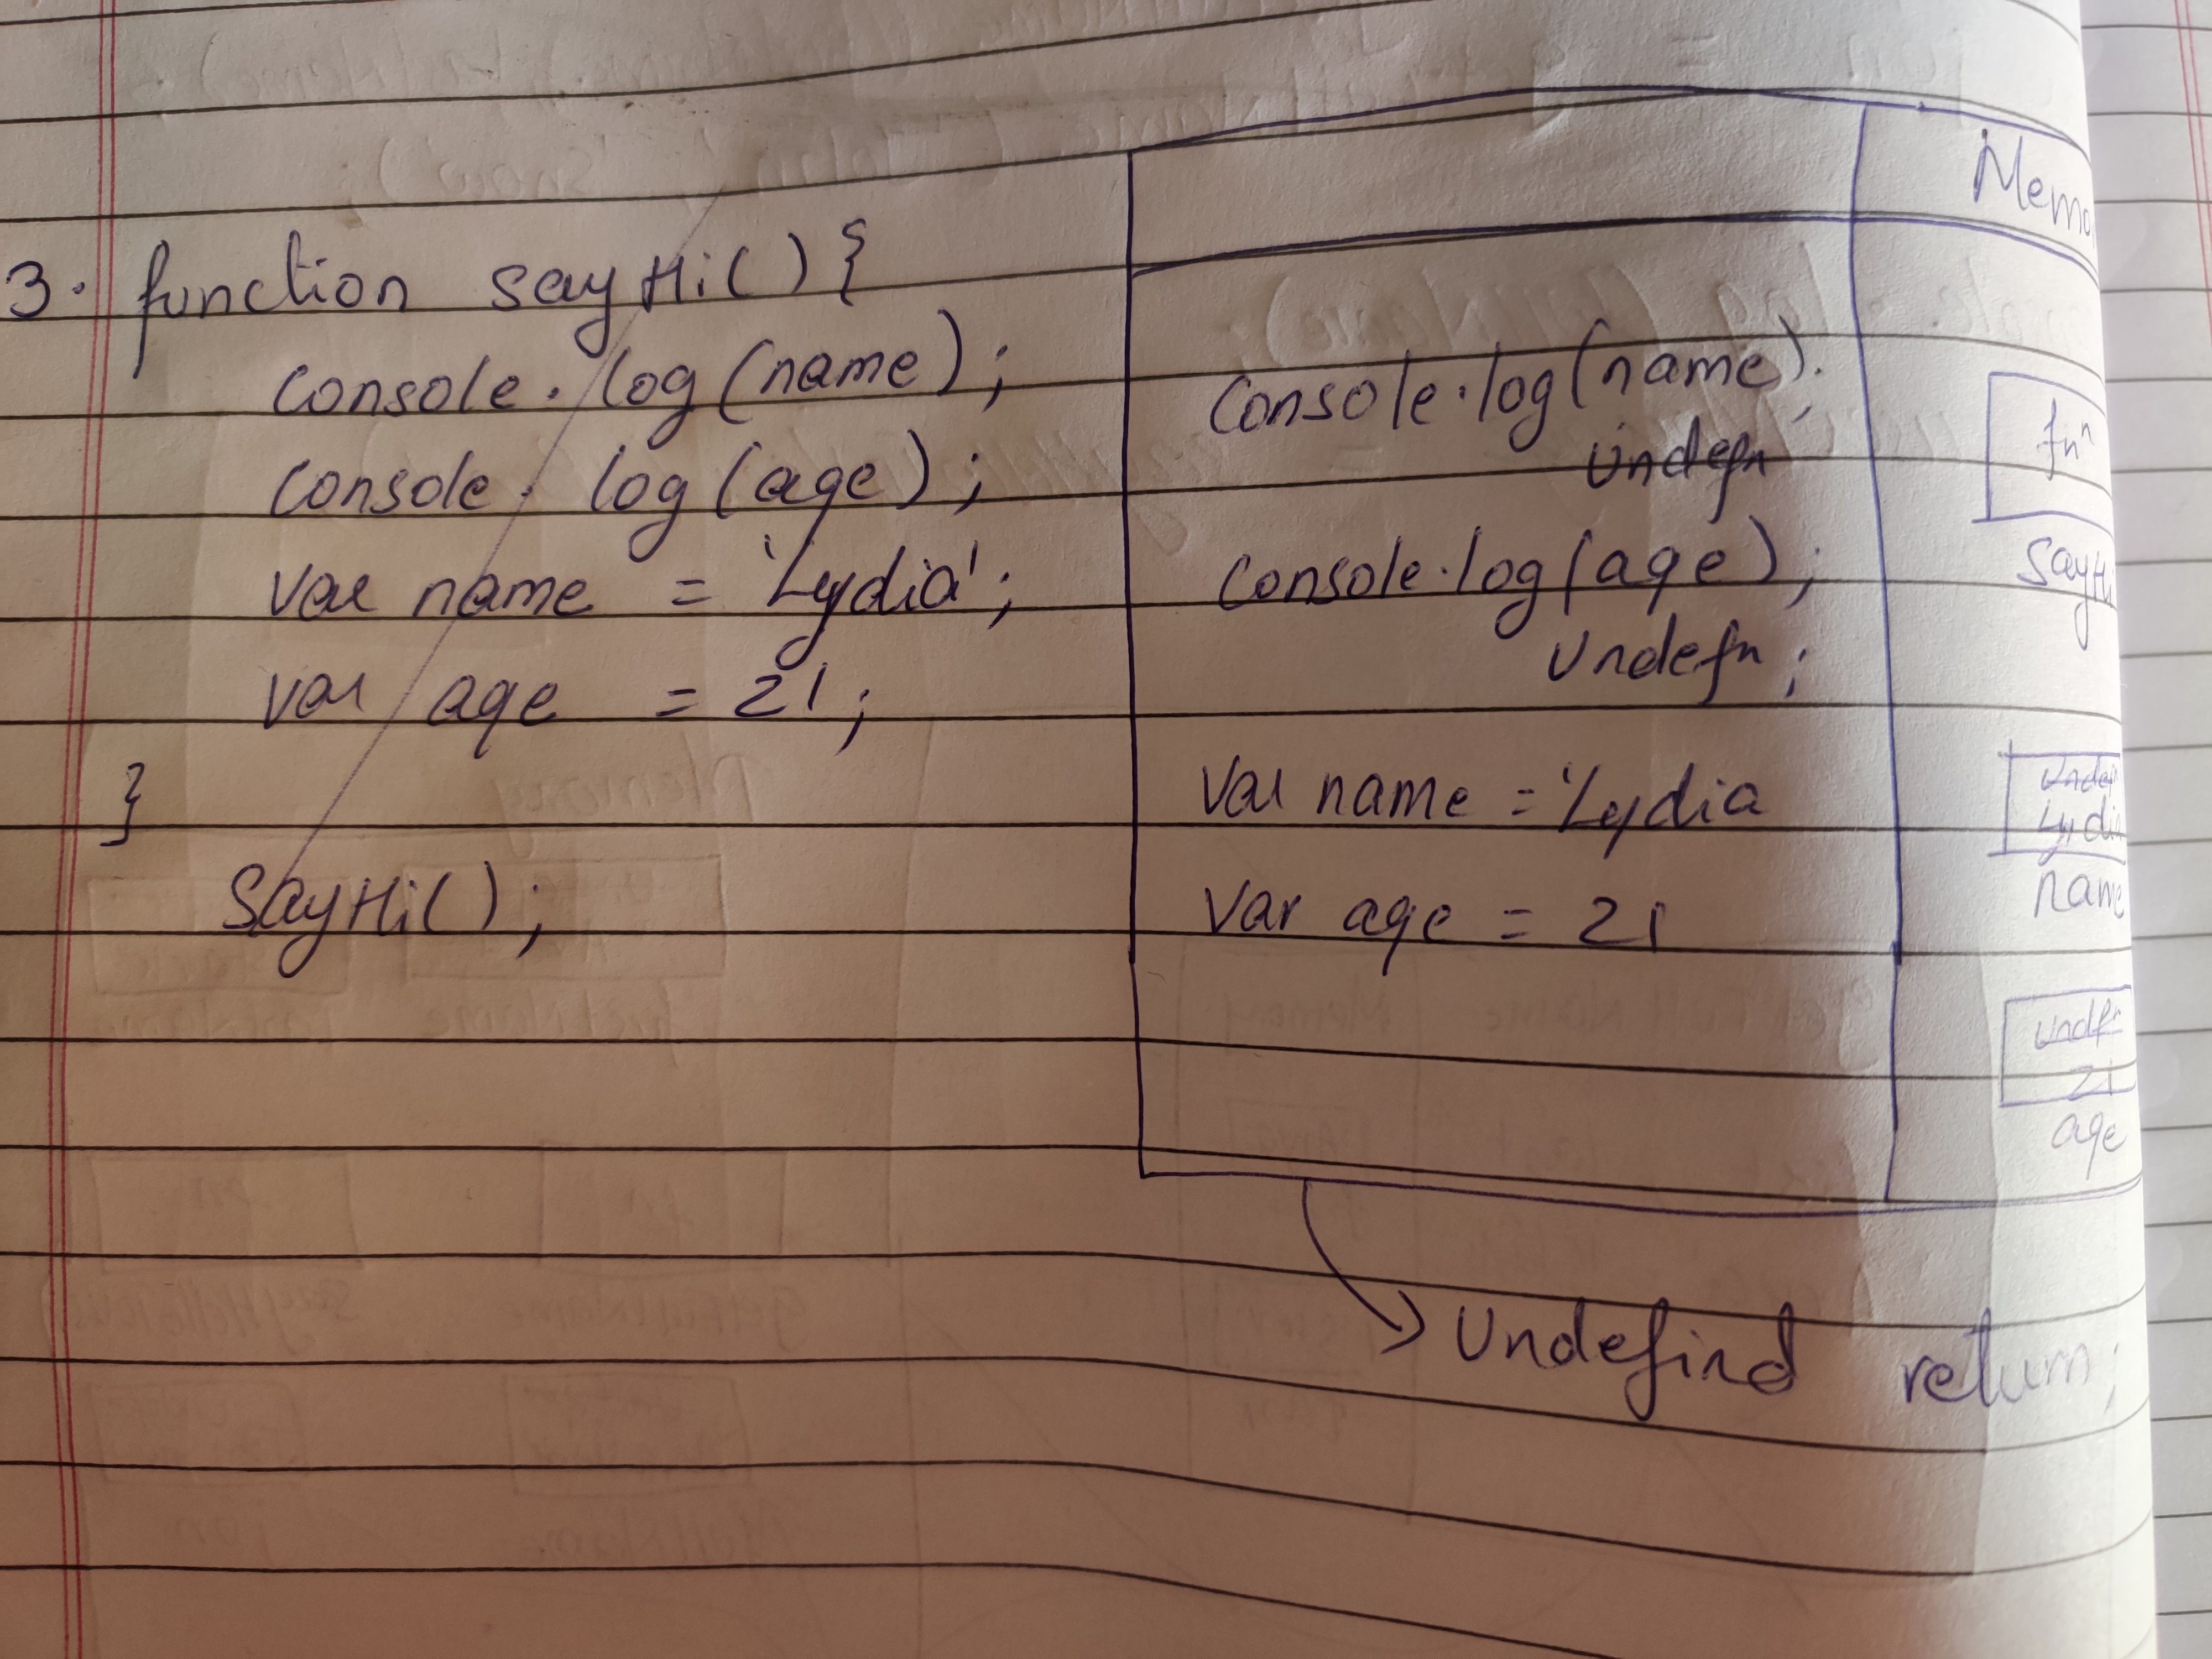 3. function sayHi() {
Console.log(name);
Console.log(age);
Var name = 'Lydia';
Var age = 21;
}
SayHi();
Console.log(name).
Undefn;
Console.log(age);
Undefn;
Var name = 'Lydia
Var age = 21
Memo
fn
SayHi
Undefn
Lydia
Name
Undefn
21
age
Undefind return;